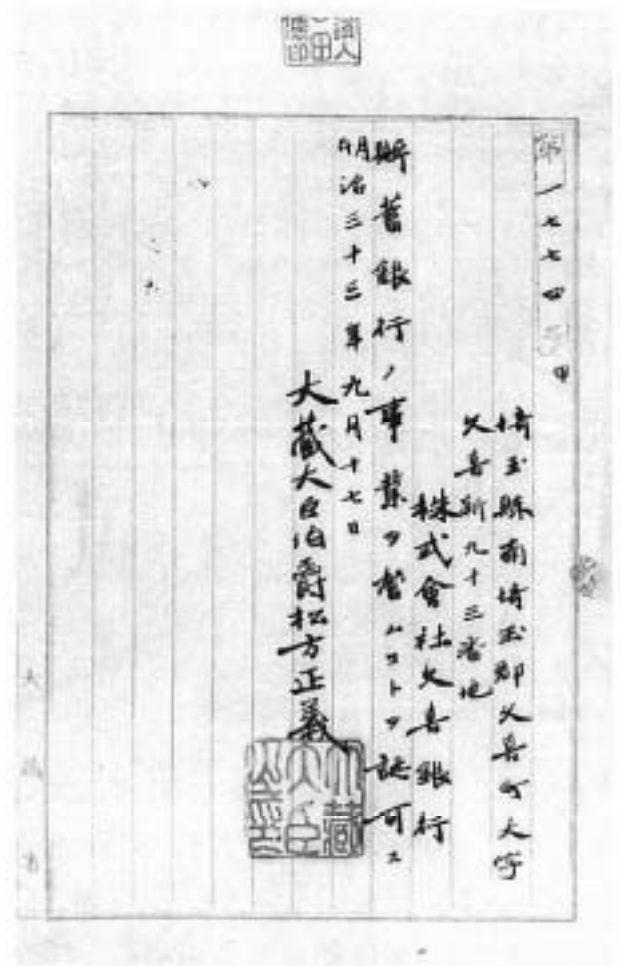 第一七七四号
埼玉縣南埼玉郡久喜町大字
久喜新九十三番地
株式會社久喜銀行
貯蓄銀行ノ事業ヲ営ムコトヲ認可ス
明治三十三年九月十七日
大藏大臣伯爵松方正義
大藏大臣之印
大藏省